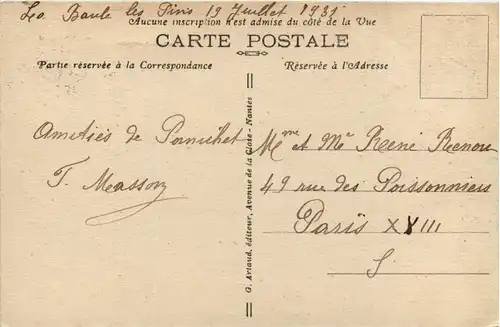 La Baule les Pins 19 Juillet 1931
Aucune inscription n'est admise du côté de la Vue
CARTE POSTALE
Partie réservée à la Correspondance
Réservée à l'Adresse
Amitiés de Pornichet
F. Masson
G. Artaud, éditeur, Avenue de la Close - Nantes
Mme et Mr René Renou
49 rue des Poissonniers
Paris XVIII
S.